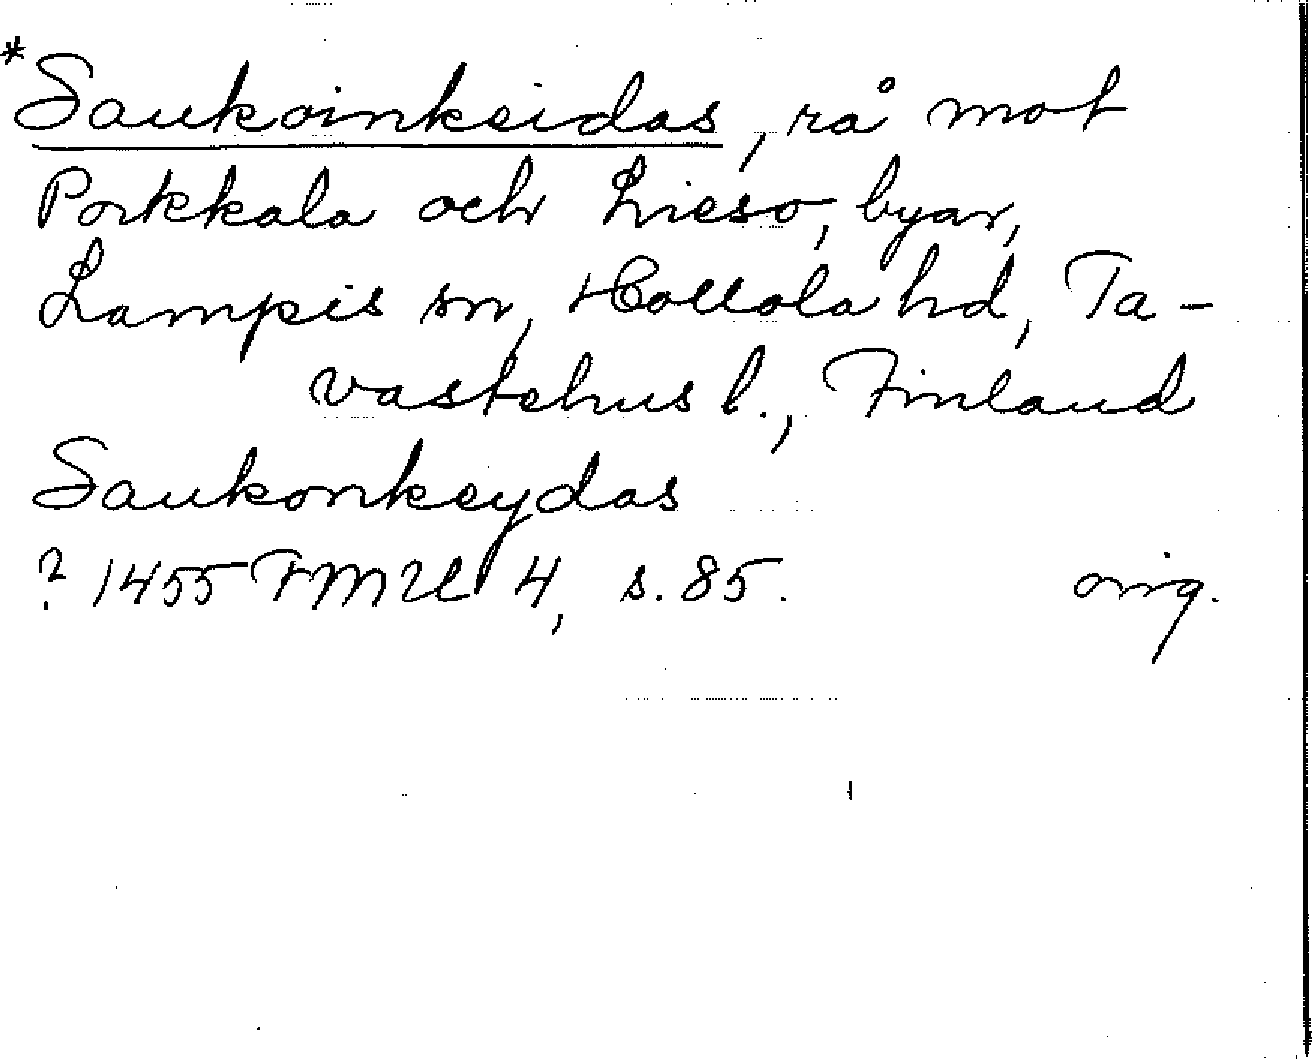 *Saukoinkeidas, rå mot
Porkkala och Lieso, byar,
Lampis sn, Hollola hd, Ta-
vastehus l., Finland
Saukonkeydas
? 1455 FMU 4, s. 85. orig.